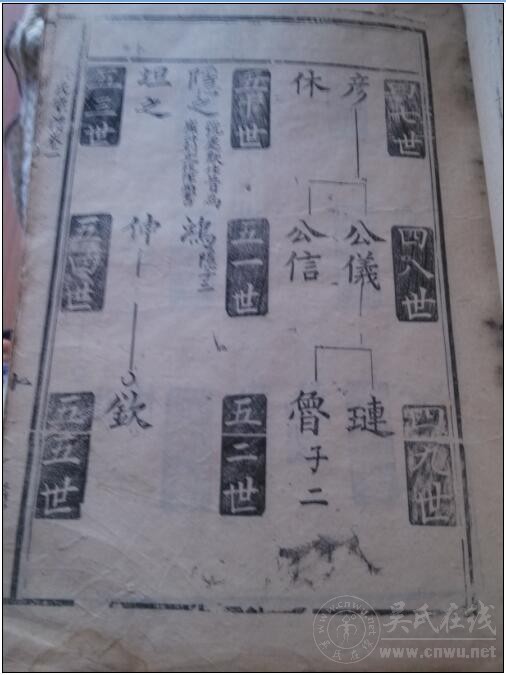 四七世
彦
休
四八世
公儀
公信
四九世
璉
曾 子二
五十世
隱之
五一世
鴻 隱之二
五二世
五三世
坦之
五四世
伸
五五世
欽
吴氏在线
www.cnwu.net